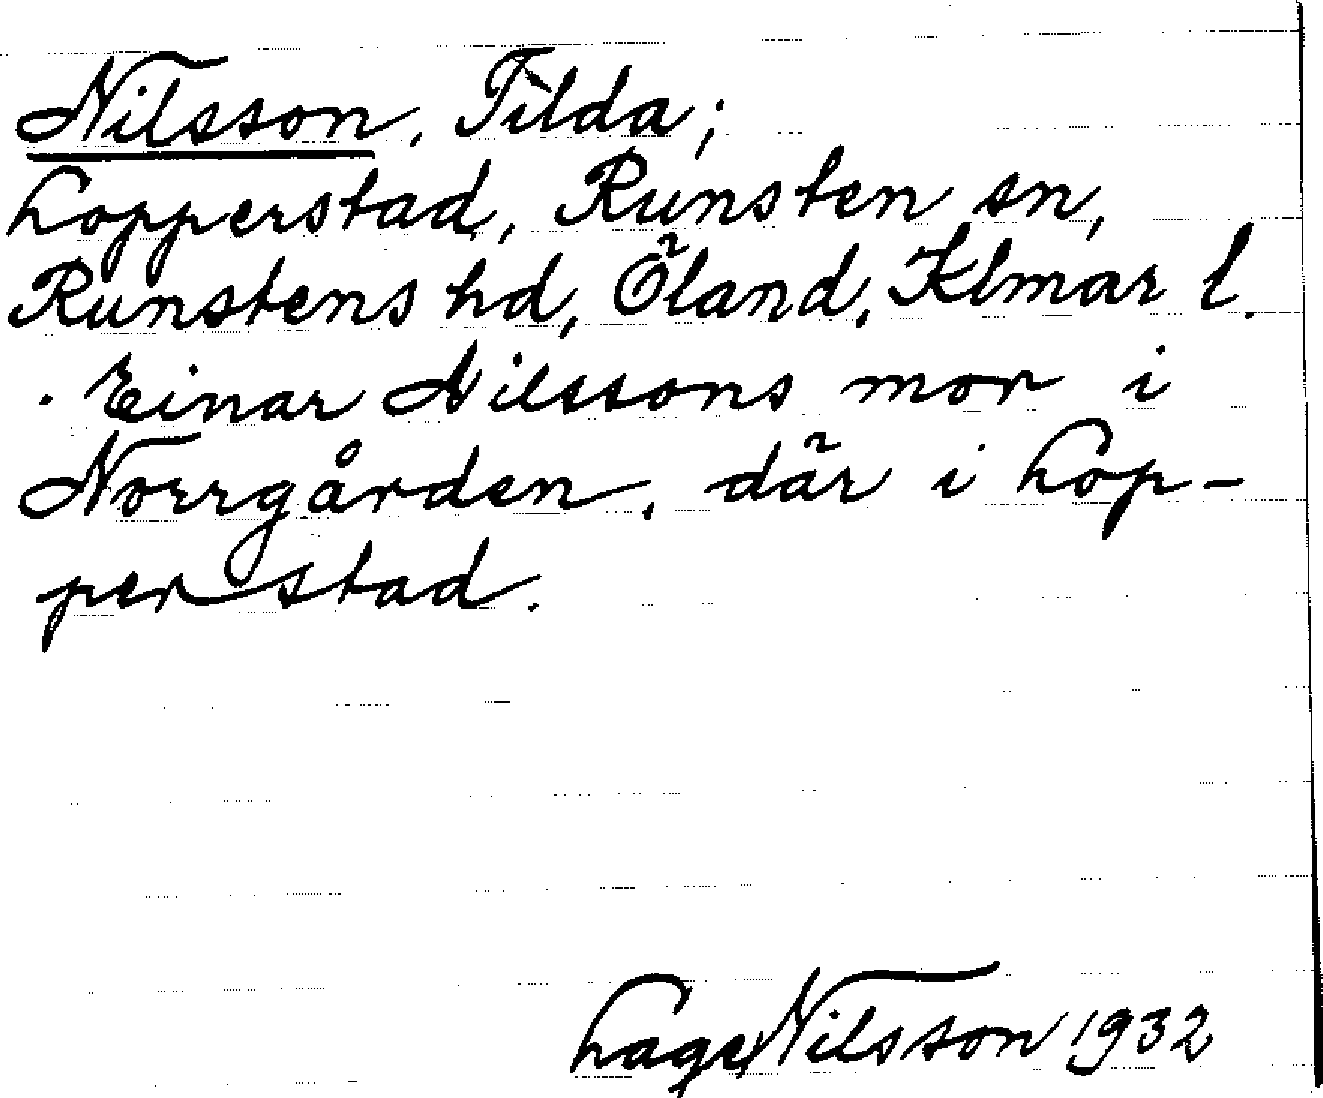 Nilsson, Tilda;
Lopperstad, Runsten sn,
Runstens hd, Öland, Klmar l.
. Einar Nilssons mor i
Norrgården, där i Lop-
perstad.
Lage Nilsson 1932